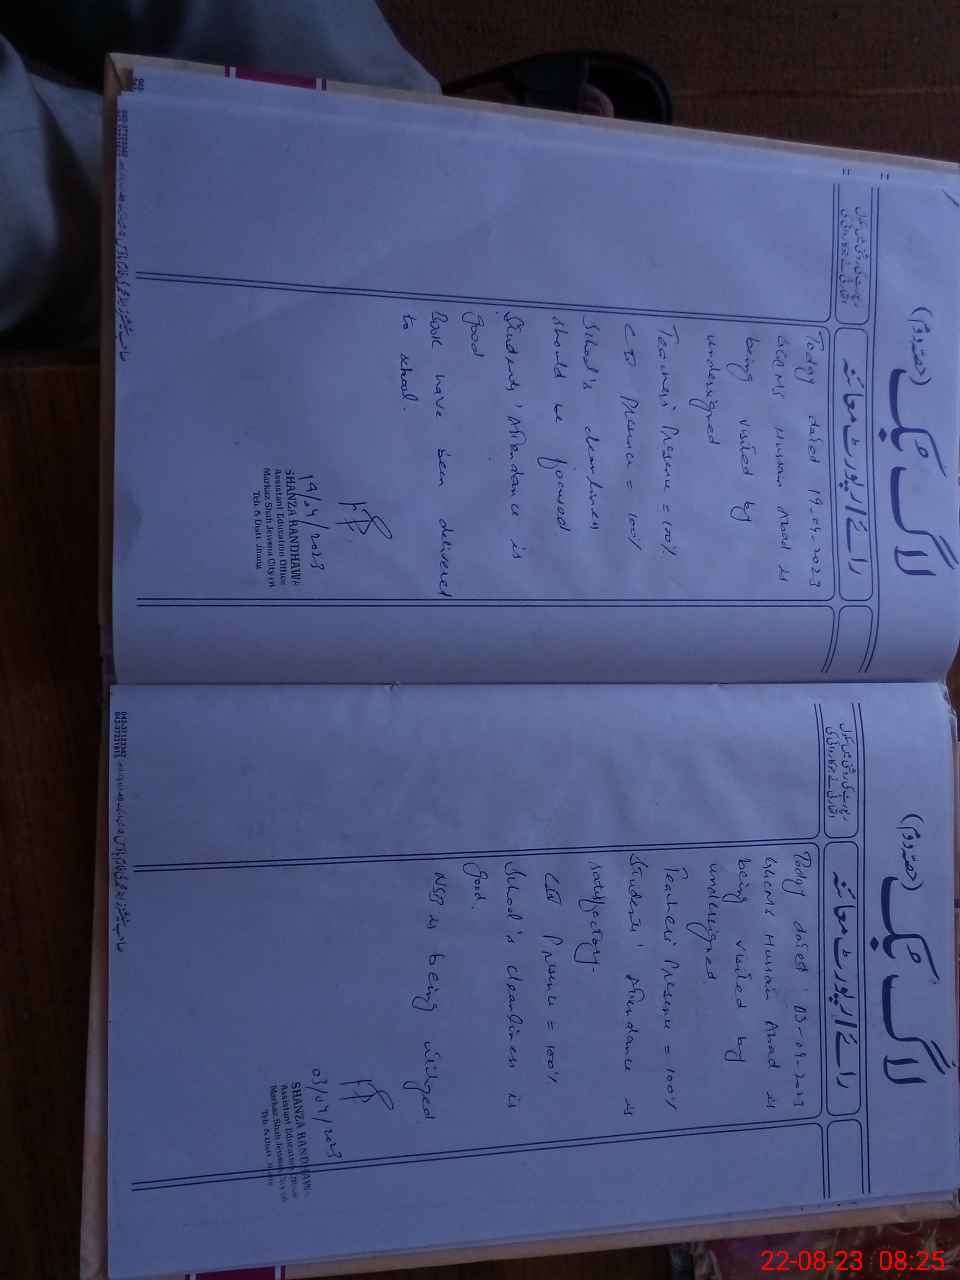 لاگ بک (حصہ دوم)
رائے / رپورٹ معائنہ
Today dated 19-04-2023
GGCMS Hussan Abad is
being visited by
undersigned
Teachers Presence = 100%
CTI Presence = 100%
School's cleanliness
should be focused
Students' Attendance is
good
Book have been delivered
to school.
19/04/2023
SHANZA RANDHAWA
Assistant Education Officer
Markaz Shah Jewena City
Teh. & Distt. Jhang
لاگ بک (حصہ دوم)
رائے / رپورٹ معائنہ
Today dated 03-04-2023
GGCMS Hussan Abad is
being visited by
undersigned
Teachers Presence = 100%
Students' Attendance is
satisfactory.
CTI Presence = 100%
School's cleanliness is
good.
NSB is being utilized
03/04/2023
SHANZA RANDHAWA
Assistant Education Officer
Markaz Shah Jewena City
Teh. & Distt.
22-08-23 08:25